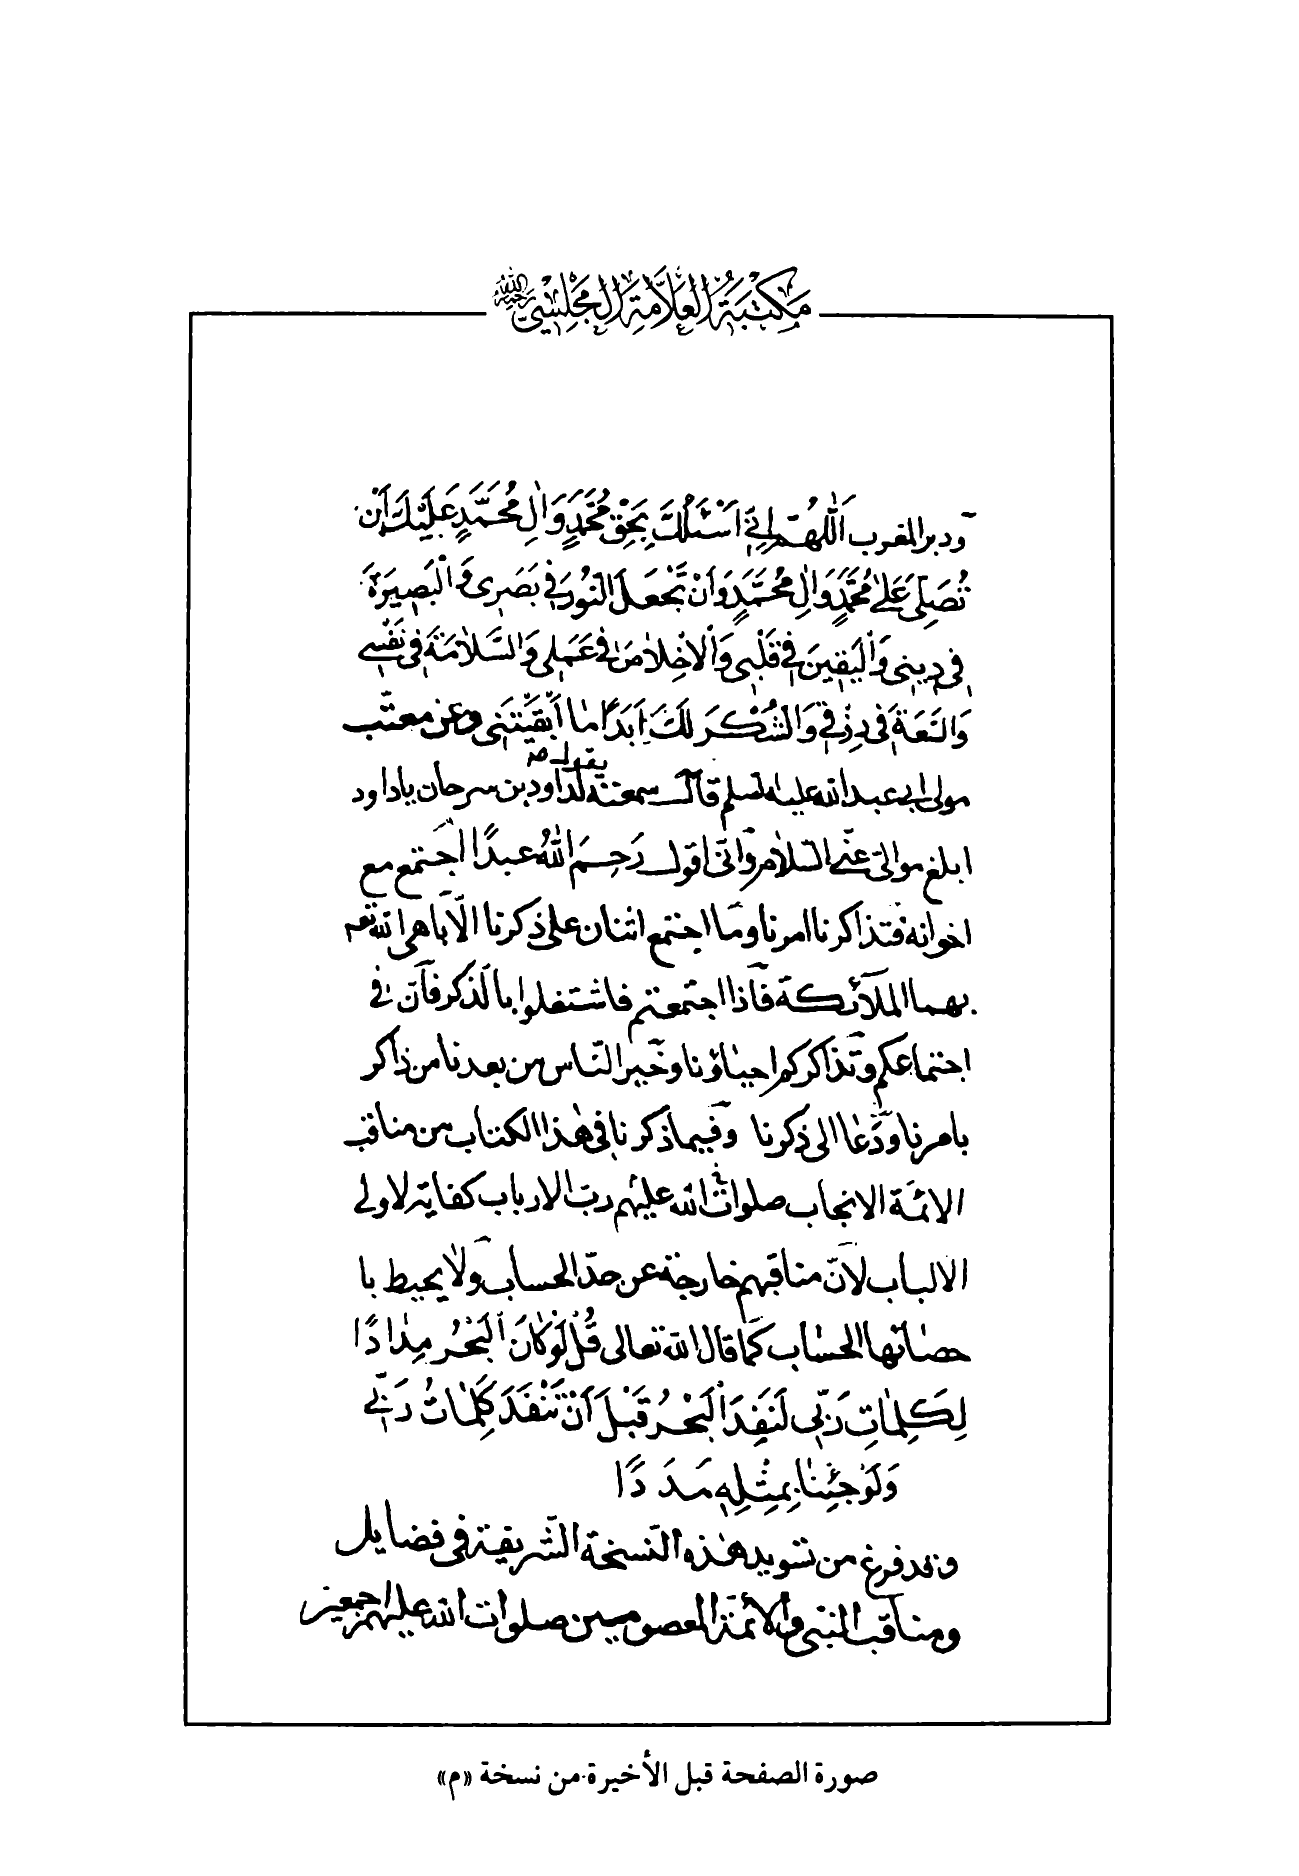 مَكْتَبَةُ الْعَلَّامَةِ الْمَجْلِسِيّ رحمه الله
ودبر المغرب اَللّٰهُمَّ اِنّي اَسْئَلُكَ بِحَقِّ مُحَمَّدٍ وَاٰلِ مُحَمَّدٍ عَلَيْكَ اَنْ
تُصَلِّيَ عَلىٰ مُحَمَّدٍ وَاٰلِ مُحَمَّدٍ وَاَنْ تَجْعَلَ النُّورَ في بَصَرى وَالْبَصِيرَةَ
في دِيني وَالْيَقينَ في قَلْبي وَالْاِخْلاصَ في عَمَلي وَالسَّلامَةَ في نَفْسي
وَالسَّعَةَ في رِزْقي وَالشُّكْرَ لَكَ اَبَدًا ما اَبْقَيْتَني وعن معتّب
مولى ابي عبد الله عليه السلم قال سمعته يقول لداود بن سرحان يا داود
ابلغ موالىّ عنّي السّلام وانّى اقول رَحِمَ اللهُ عبدًا اجتمع مع
اخوانه فتذاكرنا امرنا وما اجتمع اثنان على ذكرنا الّا باهى الله تعه
بهما الملآئكة فاذا اجتمعتم فاشتغلوا بالذكر فان في
اجتماعكم وتذاكركم احياؤنا وخير النّاس من بعدنا من ذاكر
بامرنا ودَعا الى ذكرنا وفيما ذكرنا في هٰذا الكتاب من مناقب
الائمّة الانجاب صلوات الله عليهم ربّ الارباب كفاية لاولي
الالباب لانّ مناقبهم خارجة عن حدّ الحساب ولا يحيط با
حصائها الحسّاب كما قال الله تعالى قُلْ لَوْ كانَ الْبَحْرُ مِدادًا
لِكَلِماتِ رَبّي لَنَفِدَ الْبَحْرُ قَبْلَ اَنْ تَنْفَدَ كَلِماتُ رَبّي
وَلَوْ جِئْنا بِمِثْلِهِ مَدَدًا
وقد فرغ من تسويد هٰذه النّسخة الشّريفة في فضايل
ومناقب النبي والائمّة المعصومين صلوات الله عليهم اجمعين
صورة الصفحة قبل الأخيرة من نسخة «م»